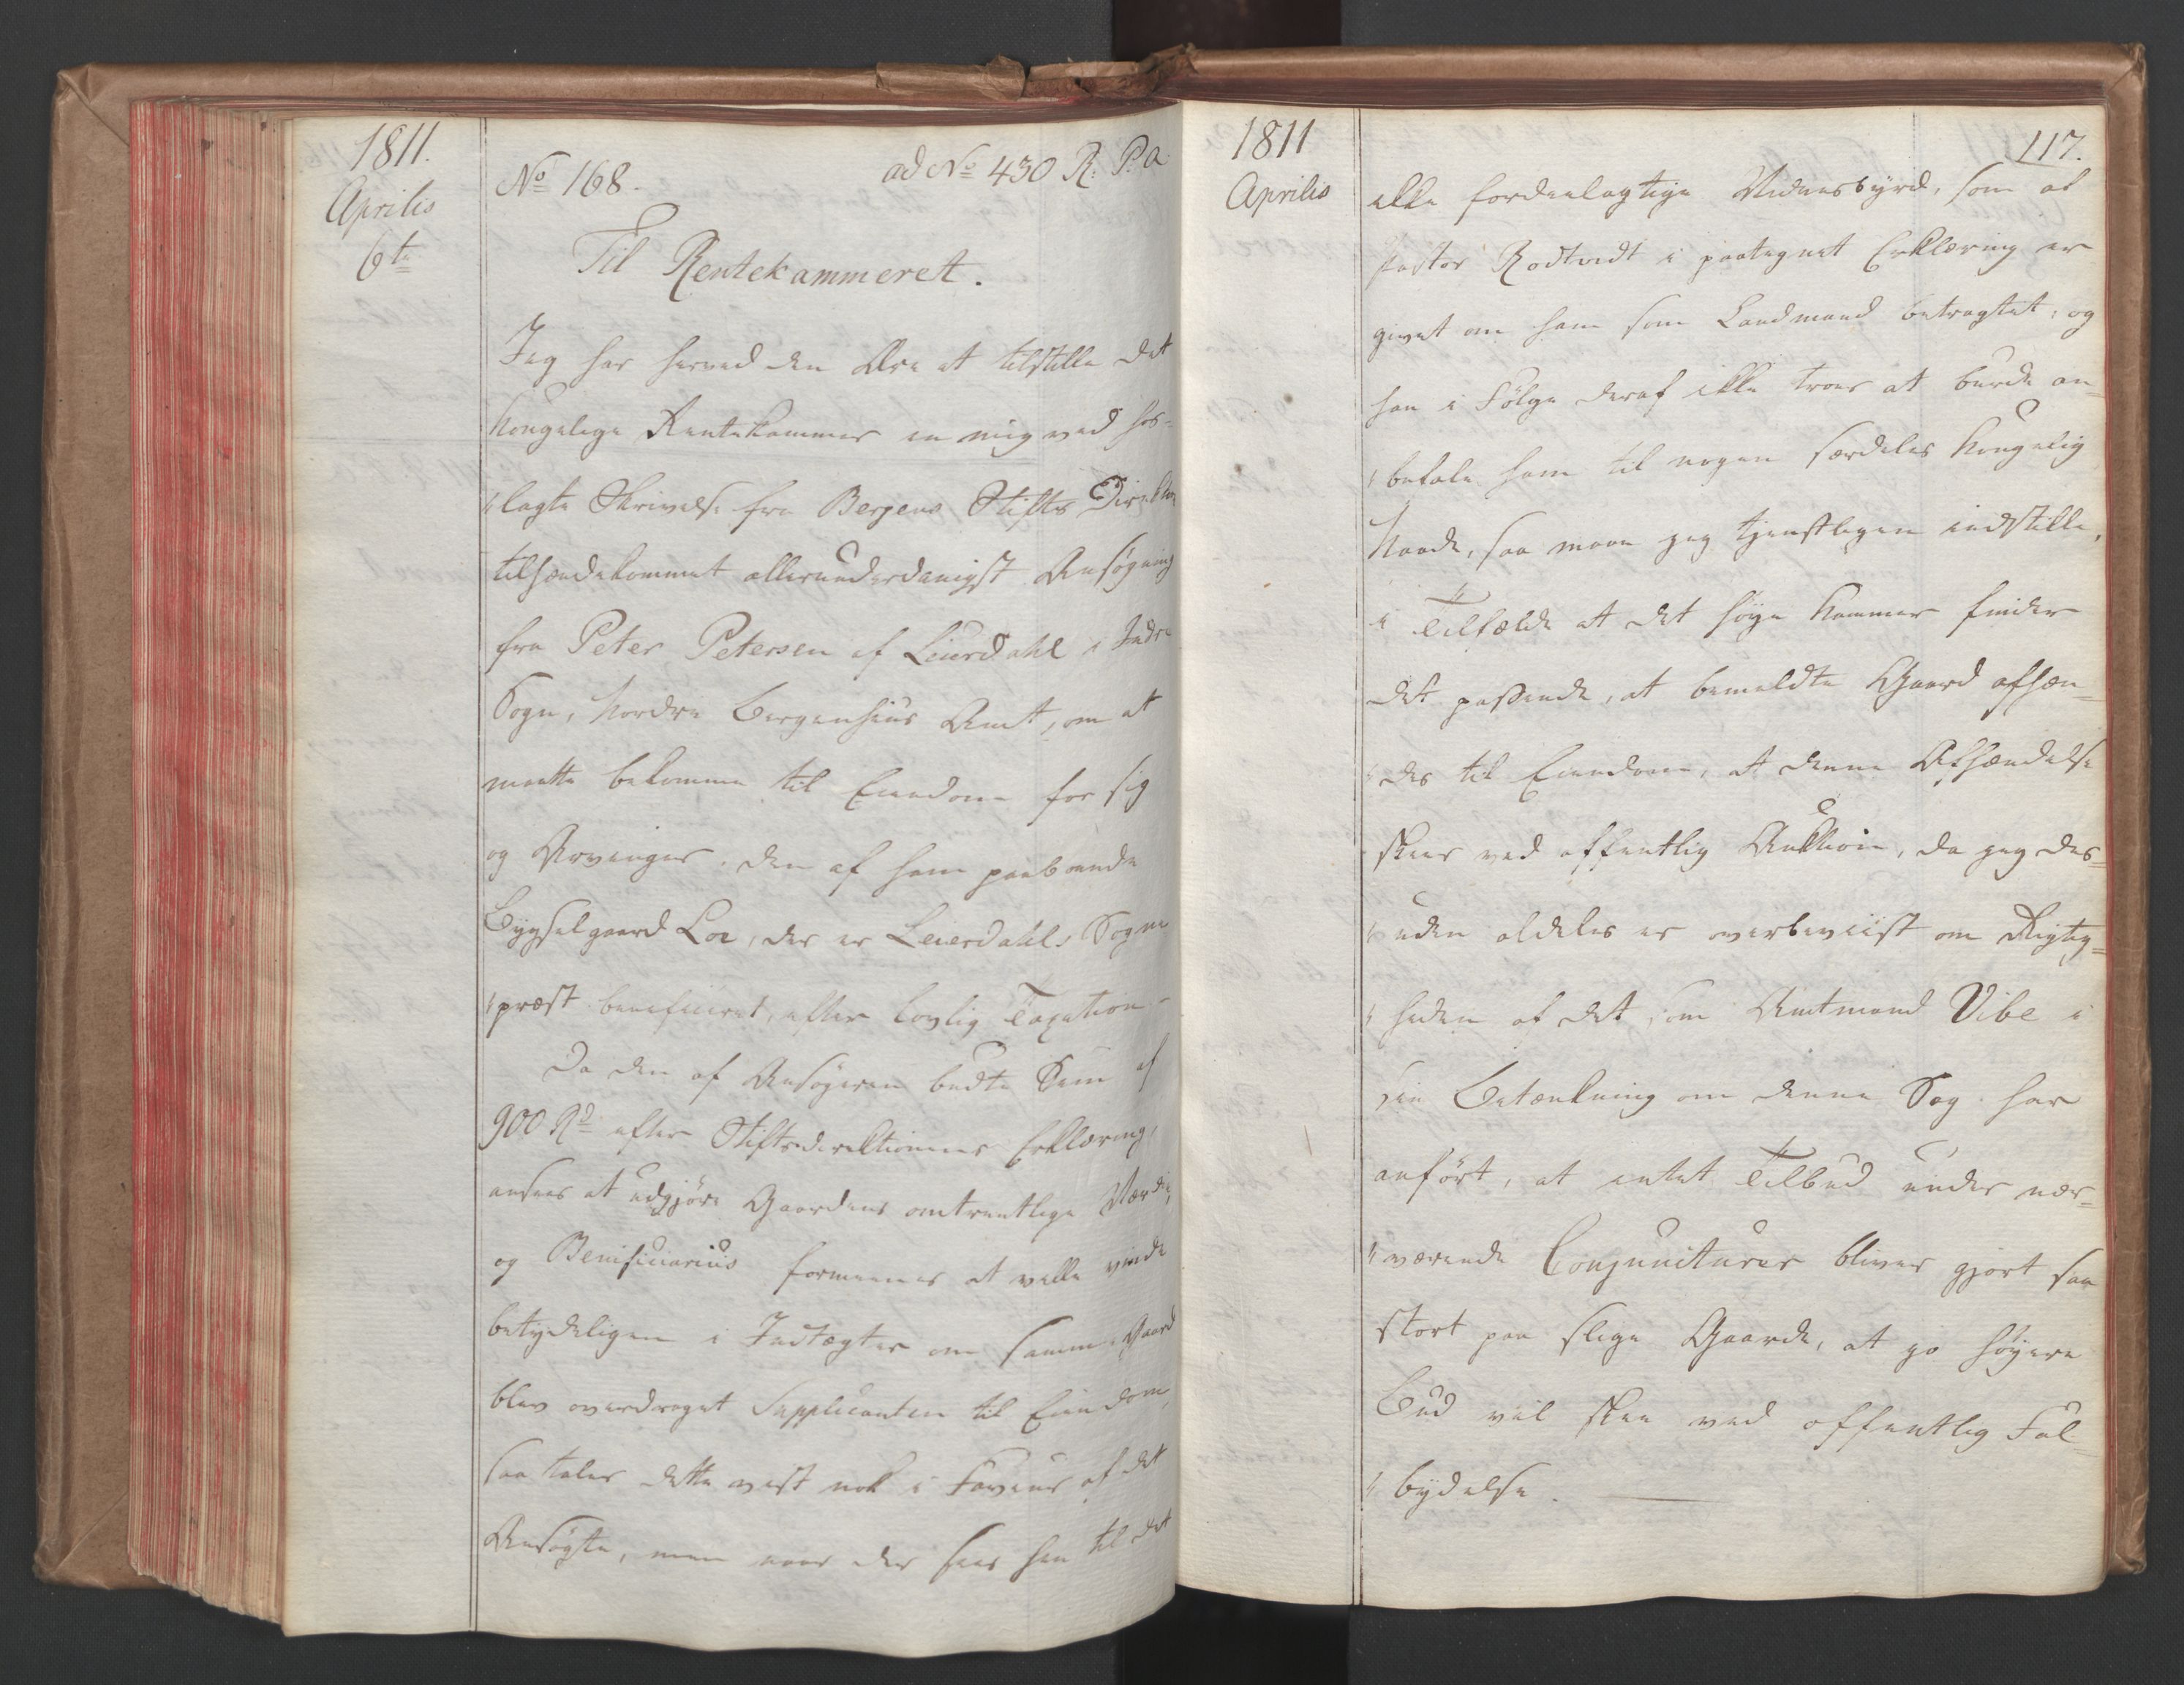 1811.
Aprilis
6te
No 168.
ad No 430 R: P. a.
Til Rentekammeret.
Jeg har herved den Ære at tilstille det
Kongelige Rentekammer en mig ved hos-
"lagte Skrivelse fra Bergens Stifts Direktion
tilhændekommet allerunderdanigst Ansøgning
fra Peter Petersen af Leierdahl i Indre
Sogn, Nordre Bergenhuus Amt, om at
maatte bekomme til Eiendom for sig
og Arvinger den af ham paaboende
Bygselgaard Loe, der er Leierdahls Sogne
"præst beneficeret, efter lovlig Taxation -
Da den af Ansøgeren budte Sum af
900 Rd efter Stiftsdirektionens Erklæring,
ansees at udgjøre Gaardens omtrentlige Værdi,
og Benificiarius formenes at ville vinde
betydeligen i Indtægter om samme Gaard
blev overdraget Supplicanten til Eiendom,
saa taler dette vist nok i Faveur af det
Ansøgte, men naar der sees hen til det
1811
Aprilis
117.
ikke fordeelagtige Vidnesbyrd, som af
Pastor Rodtvidt i paategnet Erklæring er
givet om ham som Landmand betragtet, og
han i Følge deraf ikke troes at burde an-
"befale ham til nogen særdeles Kongelig
Naade, saa maae jeg tjenstligen indstille,
i Tilfælde at det høye Kammer finder
det passende, at bemeldte Gaard afhæn-
"des til Eiendom, at denne Afhændelse
skeer ved offentlig Auktion, da jeg des-
"uden aldeles er overbeviist om Rigtig-
"heden af det som Amtmand Vibe i
sin Betænkning om denne Sag har
anført, at intet Tilbud under nær-
"værende Conjuncturer bliver gjort saa
stort paa slige Gaarde, at jo høyere
Bud vil skee ved offentlig Fal-
"bydelse.